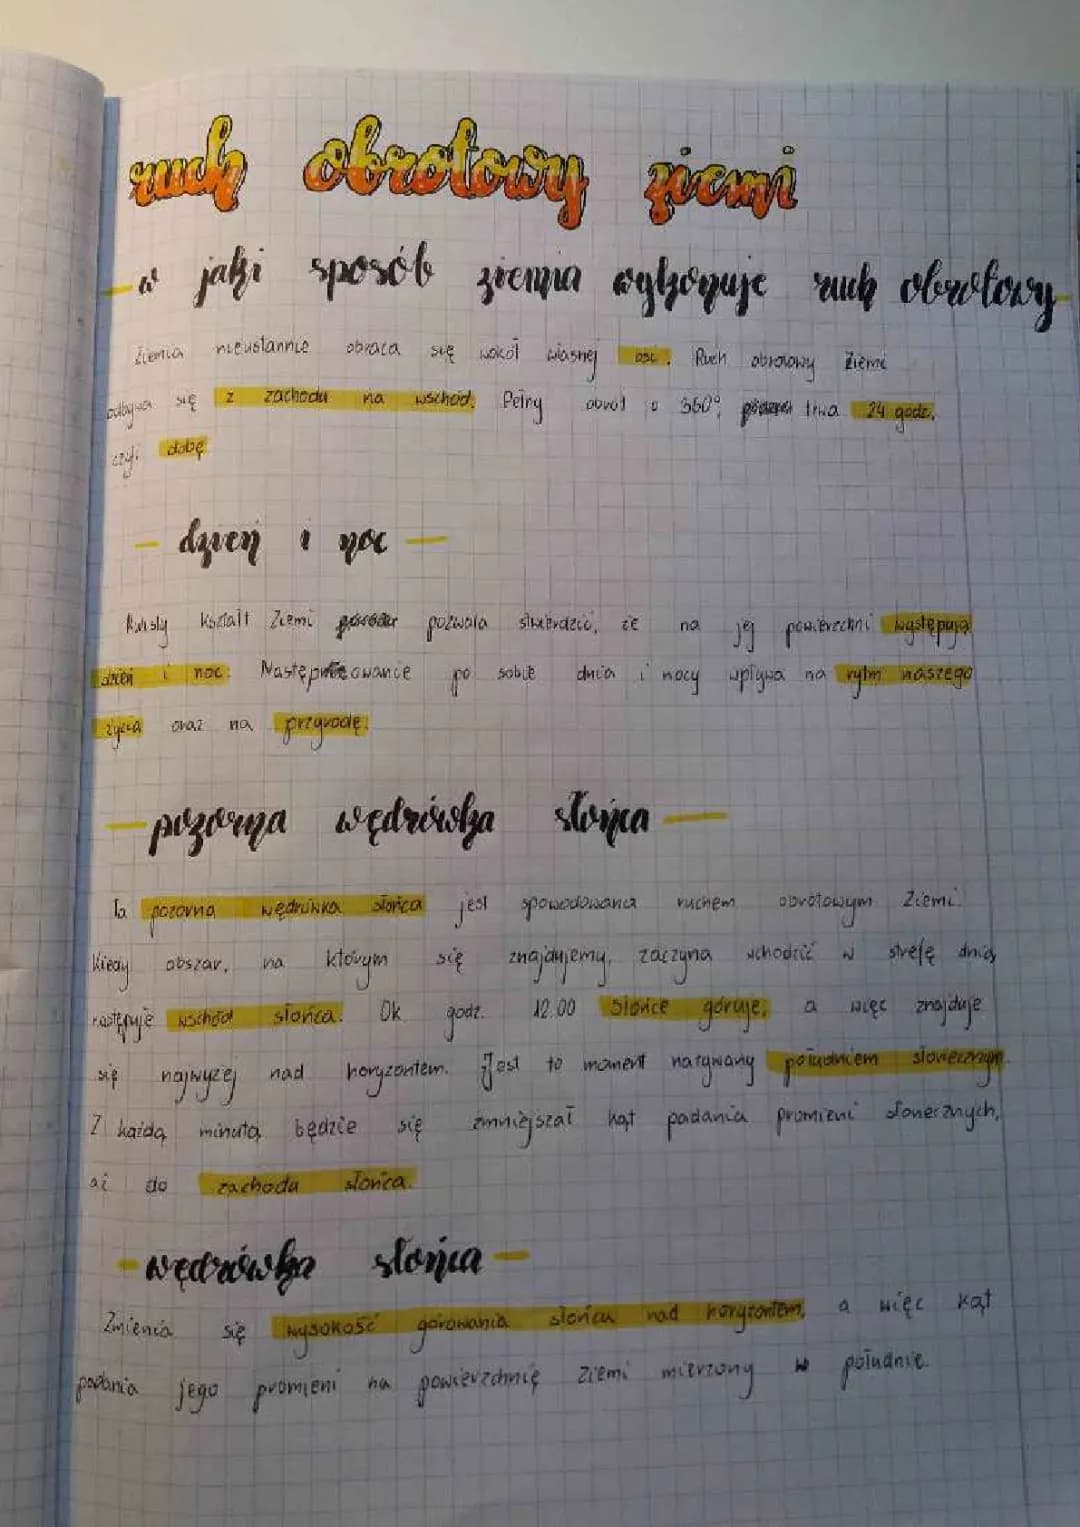 ruch obrotowy ziemi
w jaki sposób ziemia wykonuje ruch obrotowy
Ziemia nieustannie obraca się wokół własnej osi. Ruch obrotowy Ziemi
odbywa się z zachodu na wschód. Pełny obrót o 360° trwa 24 godz.
czyli dobę
dzień i noc
Kulisty kształt Ziemi pozwala stwierdzić, że na jej powierzchni występują
dzień i noc. Następowanie po sobie dnia i nocy wpływa na rytm naszego
życia oraz na przyrodę.
pozorna wędrówka słońca
Ta pozorna wędrówka słońca jest spowodowana ruchem obrotowym Ziemi.
Kiedy obszar, na którym się znajdujemy, zaczyna wchodzić w strefę dnia,
następuje wschód słońca. Ok. godz. 12.00 Słońce góruje, a więc znajduje
się najwyżej nad horyzontem. Jest to moment nazywany południem słonecznym.
Z każdą minutą będzie się zmniejszał kąt padania promieni słonecznych,
aż do zachodu słońca.
wędrówka słońca
Zmienia się wysokość górowania słońca nad horyzontem, a więc kąt
padania jego promieni na powierzchnię Ziemi mierzony w południe.